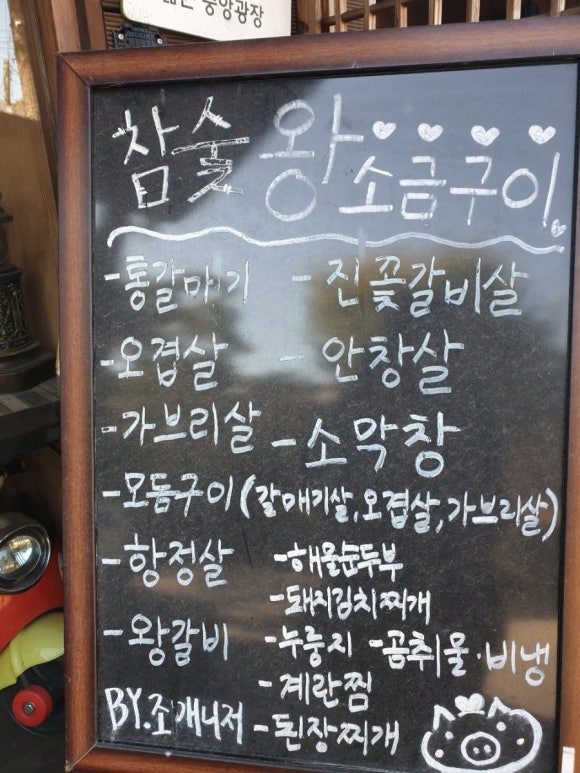 중앙광장
참숯 왕소금구이!
-통갈매기 -진꽃갈비살
-오겹살 -안창살
-가브리살 -소막창
-모둠구이(갈매기살,오겹살,가브리살)
-항정살 -해물순두부
-돼지김치찌개
-왕갈비 -누룽지 -곰취물·비냉
-계란찜
BY.조개니저 -된장찌개